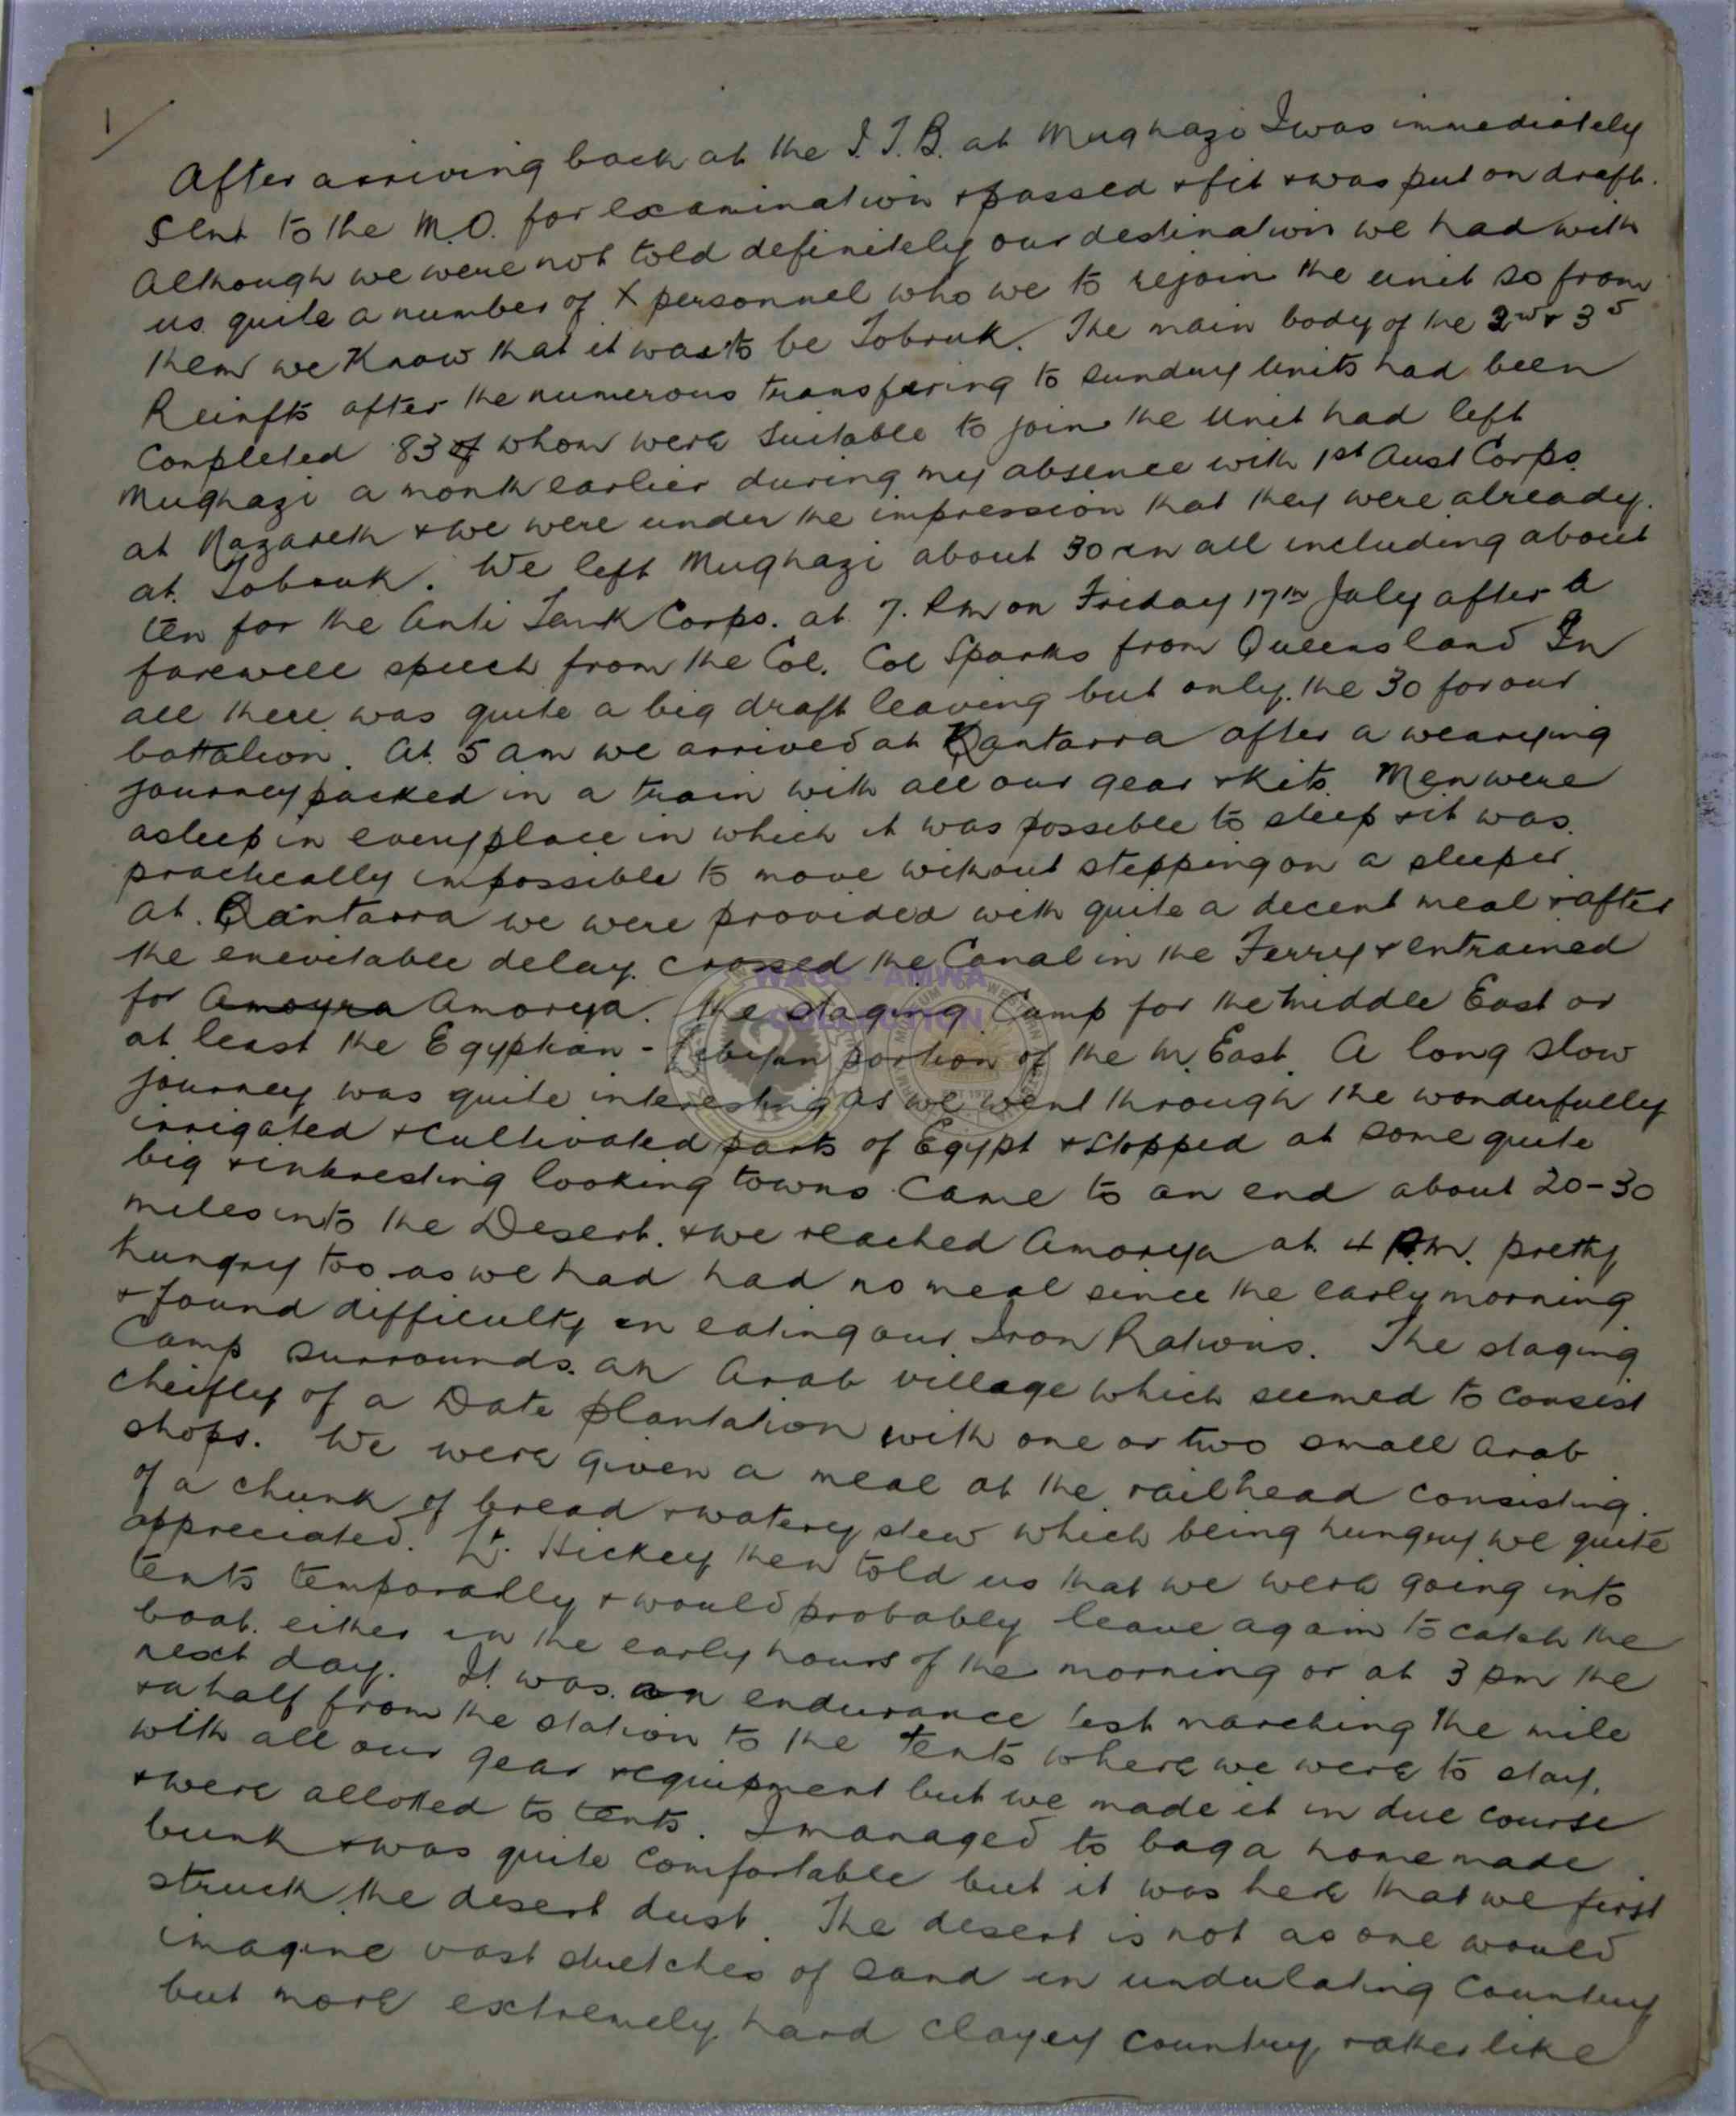 1/
After arriving back at the I.T.B. at Mughazi I was immediately
sent to the M.O. for examination & passed & fit & was put on draft.
Although we were not told definitely our destination we had with
us quite a number of X personnel who we to rejoin the unit so from
them we know that it was to be Tobruk. The main body of the 2nd & 3rd
Reinfts after the numerous transfering to sundry units had been
Completed 83 of whom were suitable to join the Unit had left
Mughazi a month earlier during my absence with 1st Aust Corps.
at Nazareth & we were under the impression that they were already.
at. Tobruk. We left Mughazi about 30 in all including about
ten for the Anti Tank Corps. at 7. Pm on Friday 17th July after a
farewell speech from the Col. Col Sparks from Queensland In
all there was quite a big draft leaving but only. the 30 for our
battalion. At. 5 am we arrived at Qantarra after a wearying
journey packed in a train with all our gear & kits. Men were
asleep in every place in which it was possible to sleep & it was.
practically impossible to move without stepping on a sleeper
At. Qantarra we were provided with quite a decent meal & after
the enevitable delay. crossed the Canal in the Ferry & entrained
for Amoyra Amorya. The staging Camp for the Middle East or
at least the Egyptian - Libyan portion of the M. East. A long slow
journey was quite interesting as we went through the wonderfully
irrigated & cultivated parts of Egypt & stopped at some quite
big & interesting looking towns. Came to an end about 20-30
miles into the Desert. & we reached Amorya at. 4 P.M. pretty
hungry too as we had had no meal since the early morning
& found difficulty in eating our Iron Rations. The staging
Camp surrounds. an Arab village which seemed to consist
cheifley of a Date plantation with one or two small Arab
shops. We were given a meal at the railhead consisting.
of a chunk of bread & watery stew which being hungry we quite
appreciated. Lt. Hickey then told us that we were going into
tents temporally & would probably leave again to catch the
boat. either in the early hours of the morning or at 3 pm the
next day. It was. an endurance test marching the mile
& a half from the station to the tents where we were to stay.
with all our gear & equipment but we made it in due course
& were alloted to tents. I managed to bag a home made
bunk & was quite comfortable but it was here that we first
struck the desert dust. The desert is not as one would
imagine vast stretches of sand in undulating Country
but more extremely hard clayey country rather like
WAGS - AMWA
COLLECTION